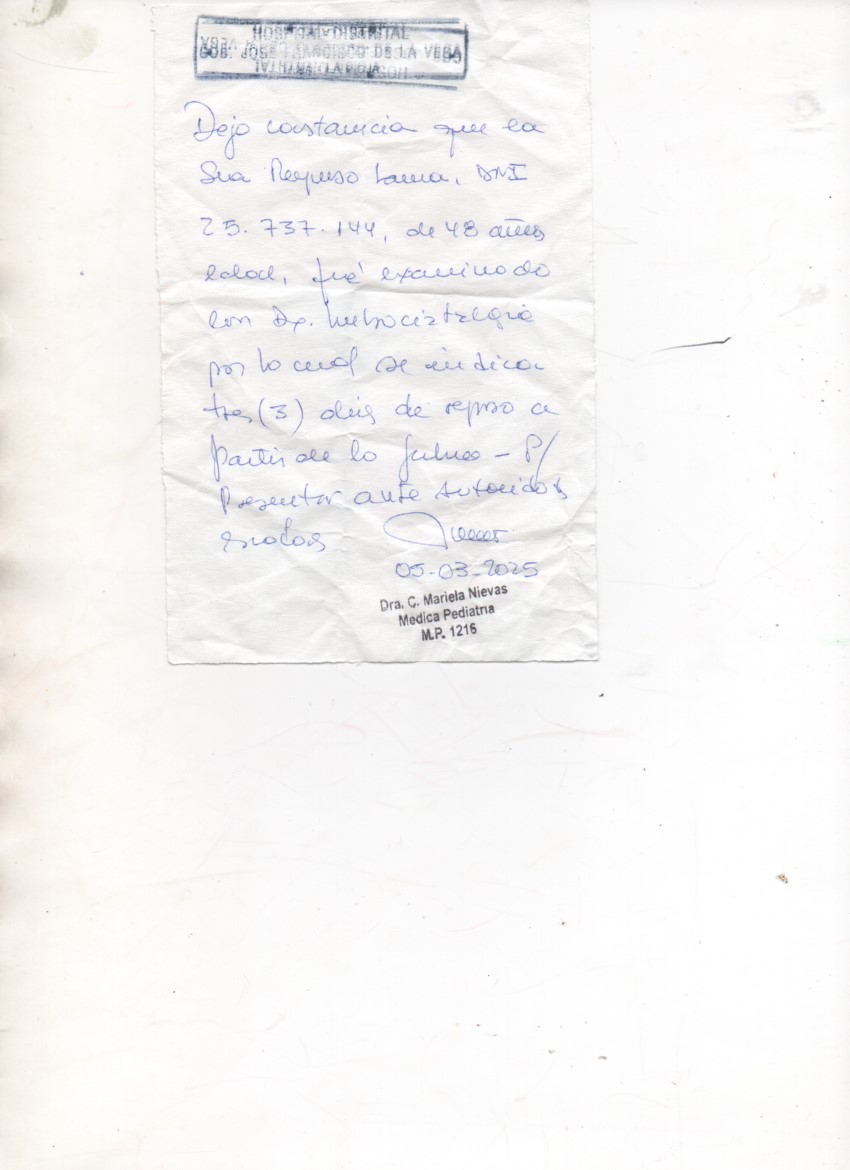 HOSPITAL DISTRITAL
GOB. JOSE FRANCISCO DE LA VEGA
Dejo constancia que la
Sra Reynoso Laura, DNI
25.737.144, de 48 años
edad, fué examinado
con Dx.
por lo cual se indica
tres (3) dias de reposo a
partir de la fecha - P/
Presentar ante autoridades
05-03-2025
Dra. C. Mariela Nievas
Medica Pediatria
M.P. 1216